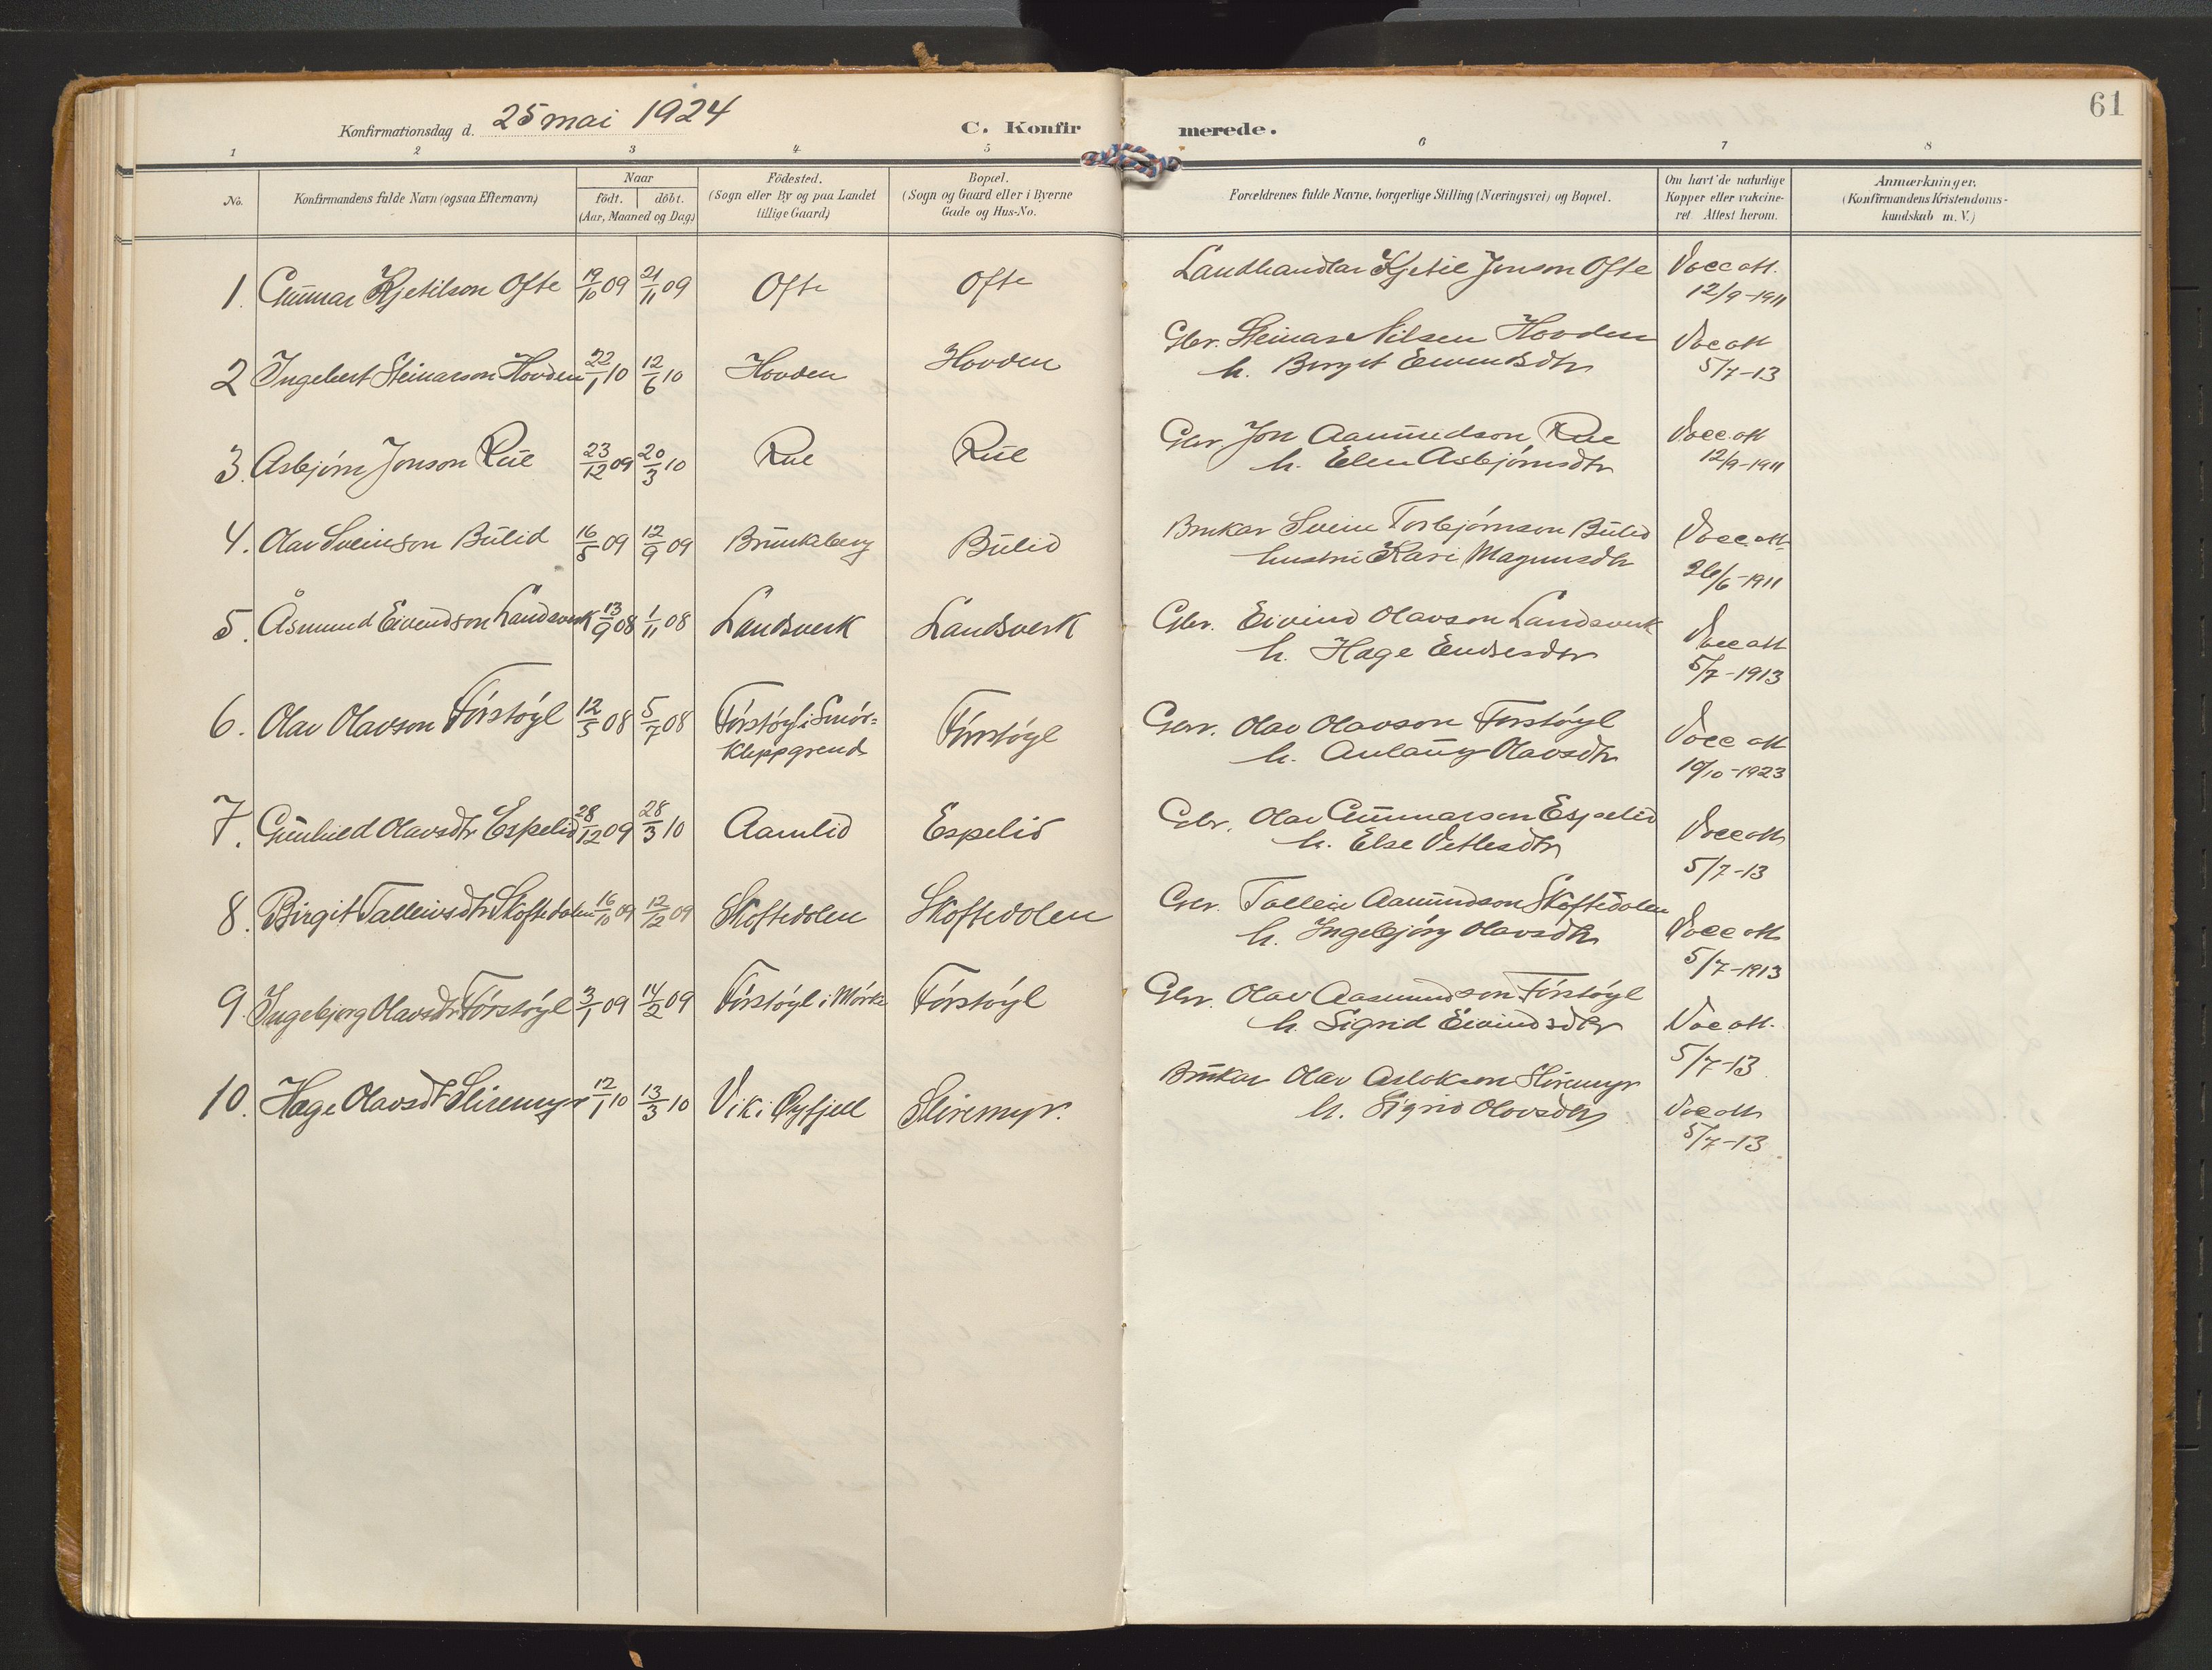 61
Konfirmationsdag d. 25 mai 1924
C. Konfirmerede.
1 2 3 4 5 6 7 8
No.
Konfirmandens fulde Navn (ogsaa Efternavn)
Naar
födt. döbt.
(Aar, Maaned og Dag)
Födested.
(Sogn eller By og paa Landet
tillige Gaard)
Bopæl.
(Sogn og Gaard eller i Byerne
Gade og Hus-No.
Forældrenes fulde Navne, borgerlige Stilling (Næringsvei) og Bopæl.
Om havt de naturlige
Kopper eller vakcine-
ret Attest herom.
Anmærkninger.
(Konfirmandens Kristendoms-
kundskab m. V.)
1. Gunnar Kjetilson Ofte 19/10 09 21/11 09 Ofte Ofte Landhandlar Kjetil Jonson Ofte Vacc att.
12/9-1911
2 Ingebert Steinarson Hovden 22/1 10 12/6 10 Hovden Hovden Gbr. Steinar Nilsen Hovden Vac att
h. Birgit Eivindsdtr 5/7-13
3. Asbjørn Jonson Rue 23/12 09 20/3 10 Rue Rue Gbr. Jon Aamundson Rue Vacc att
h. Elen Asbjørnsdtr 12/9-1911
4. Olav Sveinson Bulid 16/8 09 12/9 09 Brunkeberg Bulid Brukar Svein Torbjørnson Bulid Vacc. att
hustru Kari Magnusdtr 26/6-1911
5. Åsmund Eivendson Landsverk 13/9 08 1/11 08 Landsverk Landsverk Gbr. Eivind Olavson Landsverk Vacc att
h. Hage Endresdtr 5/7-1913
6. Olav Olavson Førstøyl 12/5 08 5/7 08 Førstøyl i Smør=
kleppgrend Førstøyl Gbr. Olav Olavson Førstøyl Vacc att
h. Anlaug Olavsdtr 10/10-1923
7. Gunhild Olavsdtr Espelid 28/12 09 28/3 10 Aamlid Espelid Gbr. Olav Gunnarson Espelid Vacc att
h. Else Vetlesdtr 5/7-13
8. Birgit Talleivsdtr Skoftedalen 16/10 09 12/12 09 Skoftedolen Skoftedolen Gbr. Talleiv Aamundson Skoftedolen Vacc att
h. Ingebjørg Olavsdtr 5/7-1913
9. Ingebjørg Olavsdtr Førstøyl 3/1 09 14/2 09 Førstøyl i Mørk. Førstøyl Gbr. Olav Aasmundson Førstøyl
h. Sigrid Eivindsdtr Vac att.
5/7-13
10. Hage Olavsdtr Sliremyr 12/1 10 13/3 10 Vik i Øyfjell Sliremyr. Brukar Olav Aslakson Sliremyr
h. Sigrid Olavsdtr Vac att
5/7-13